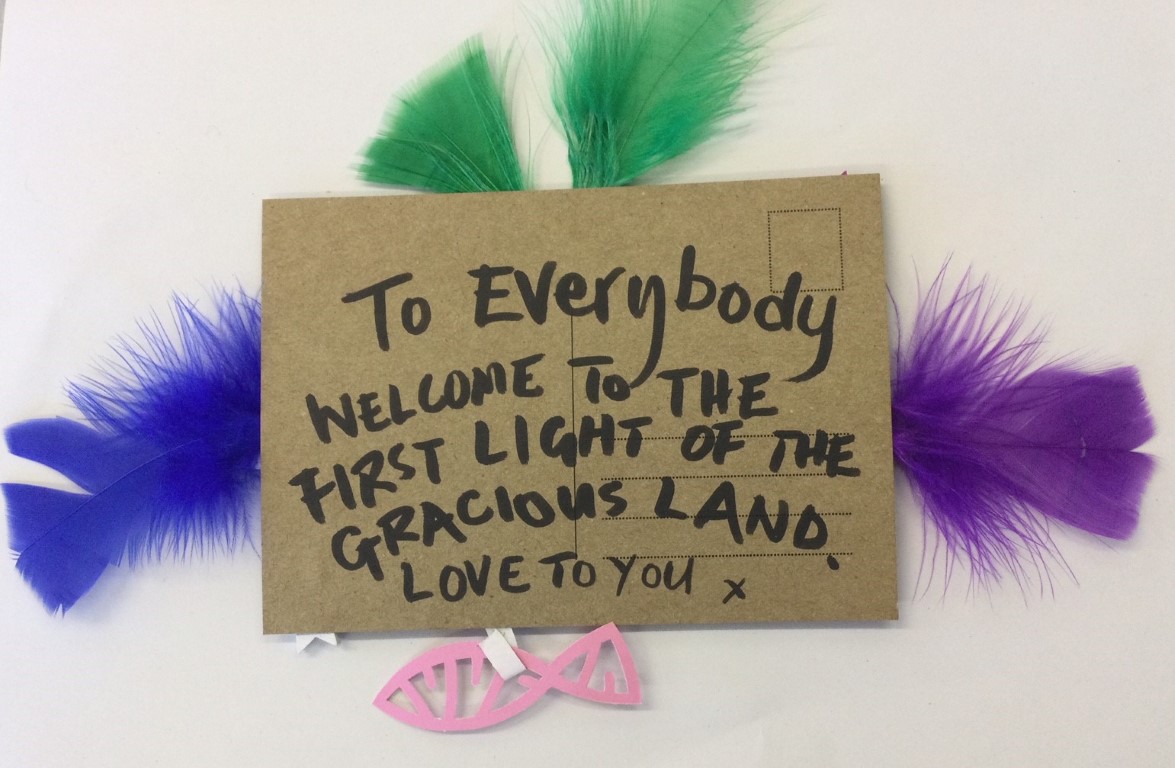 To Everybody
WELCOME To THE
FIRST LIGHT OF THE
GRACIOUS LAND.
LOVE TO YOU x